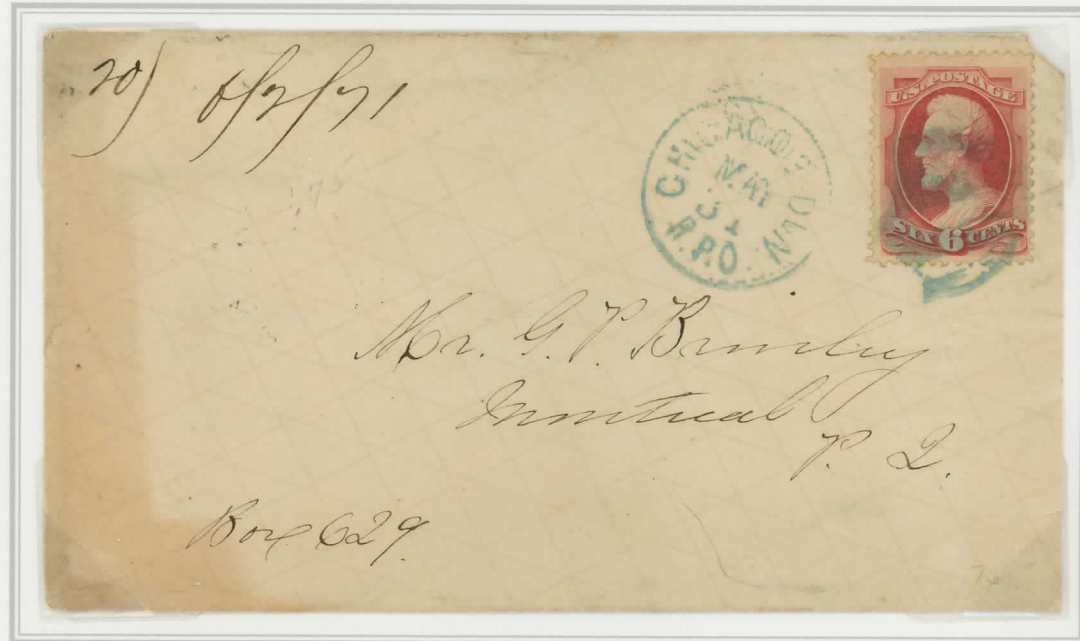 20) 6/2/71
CHICAGO
MAY
31
R.P.O.
U.S. POSTAGE
SIX 6 CENTS
Mr. G. P. Brimley
Montreal
P. Q.
Box 629.